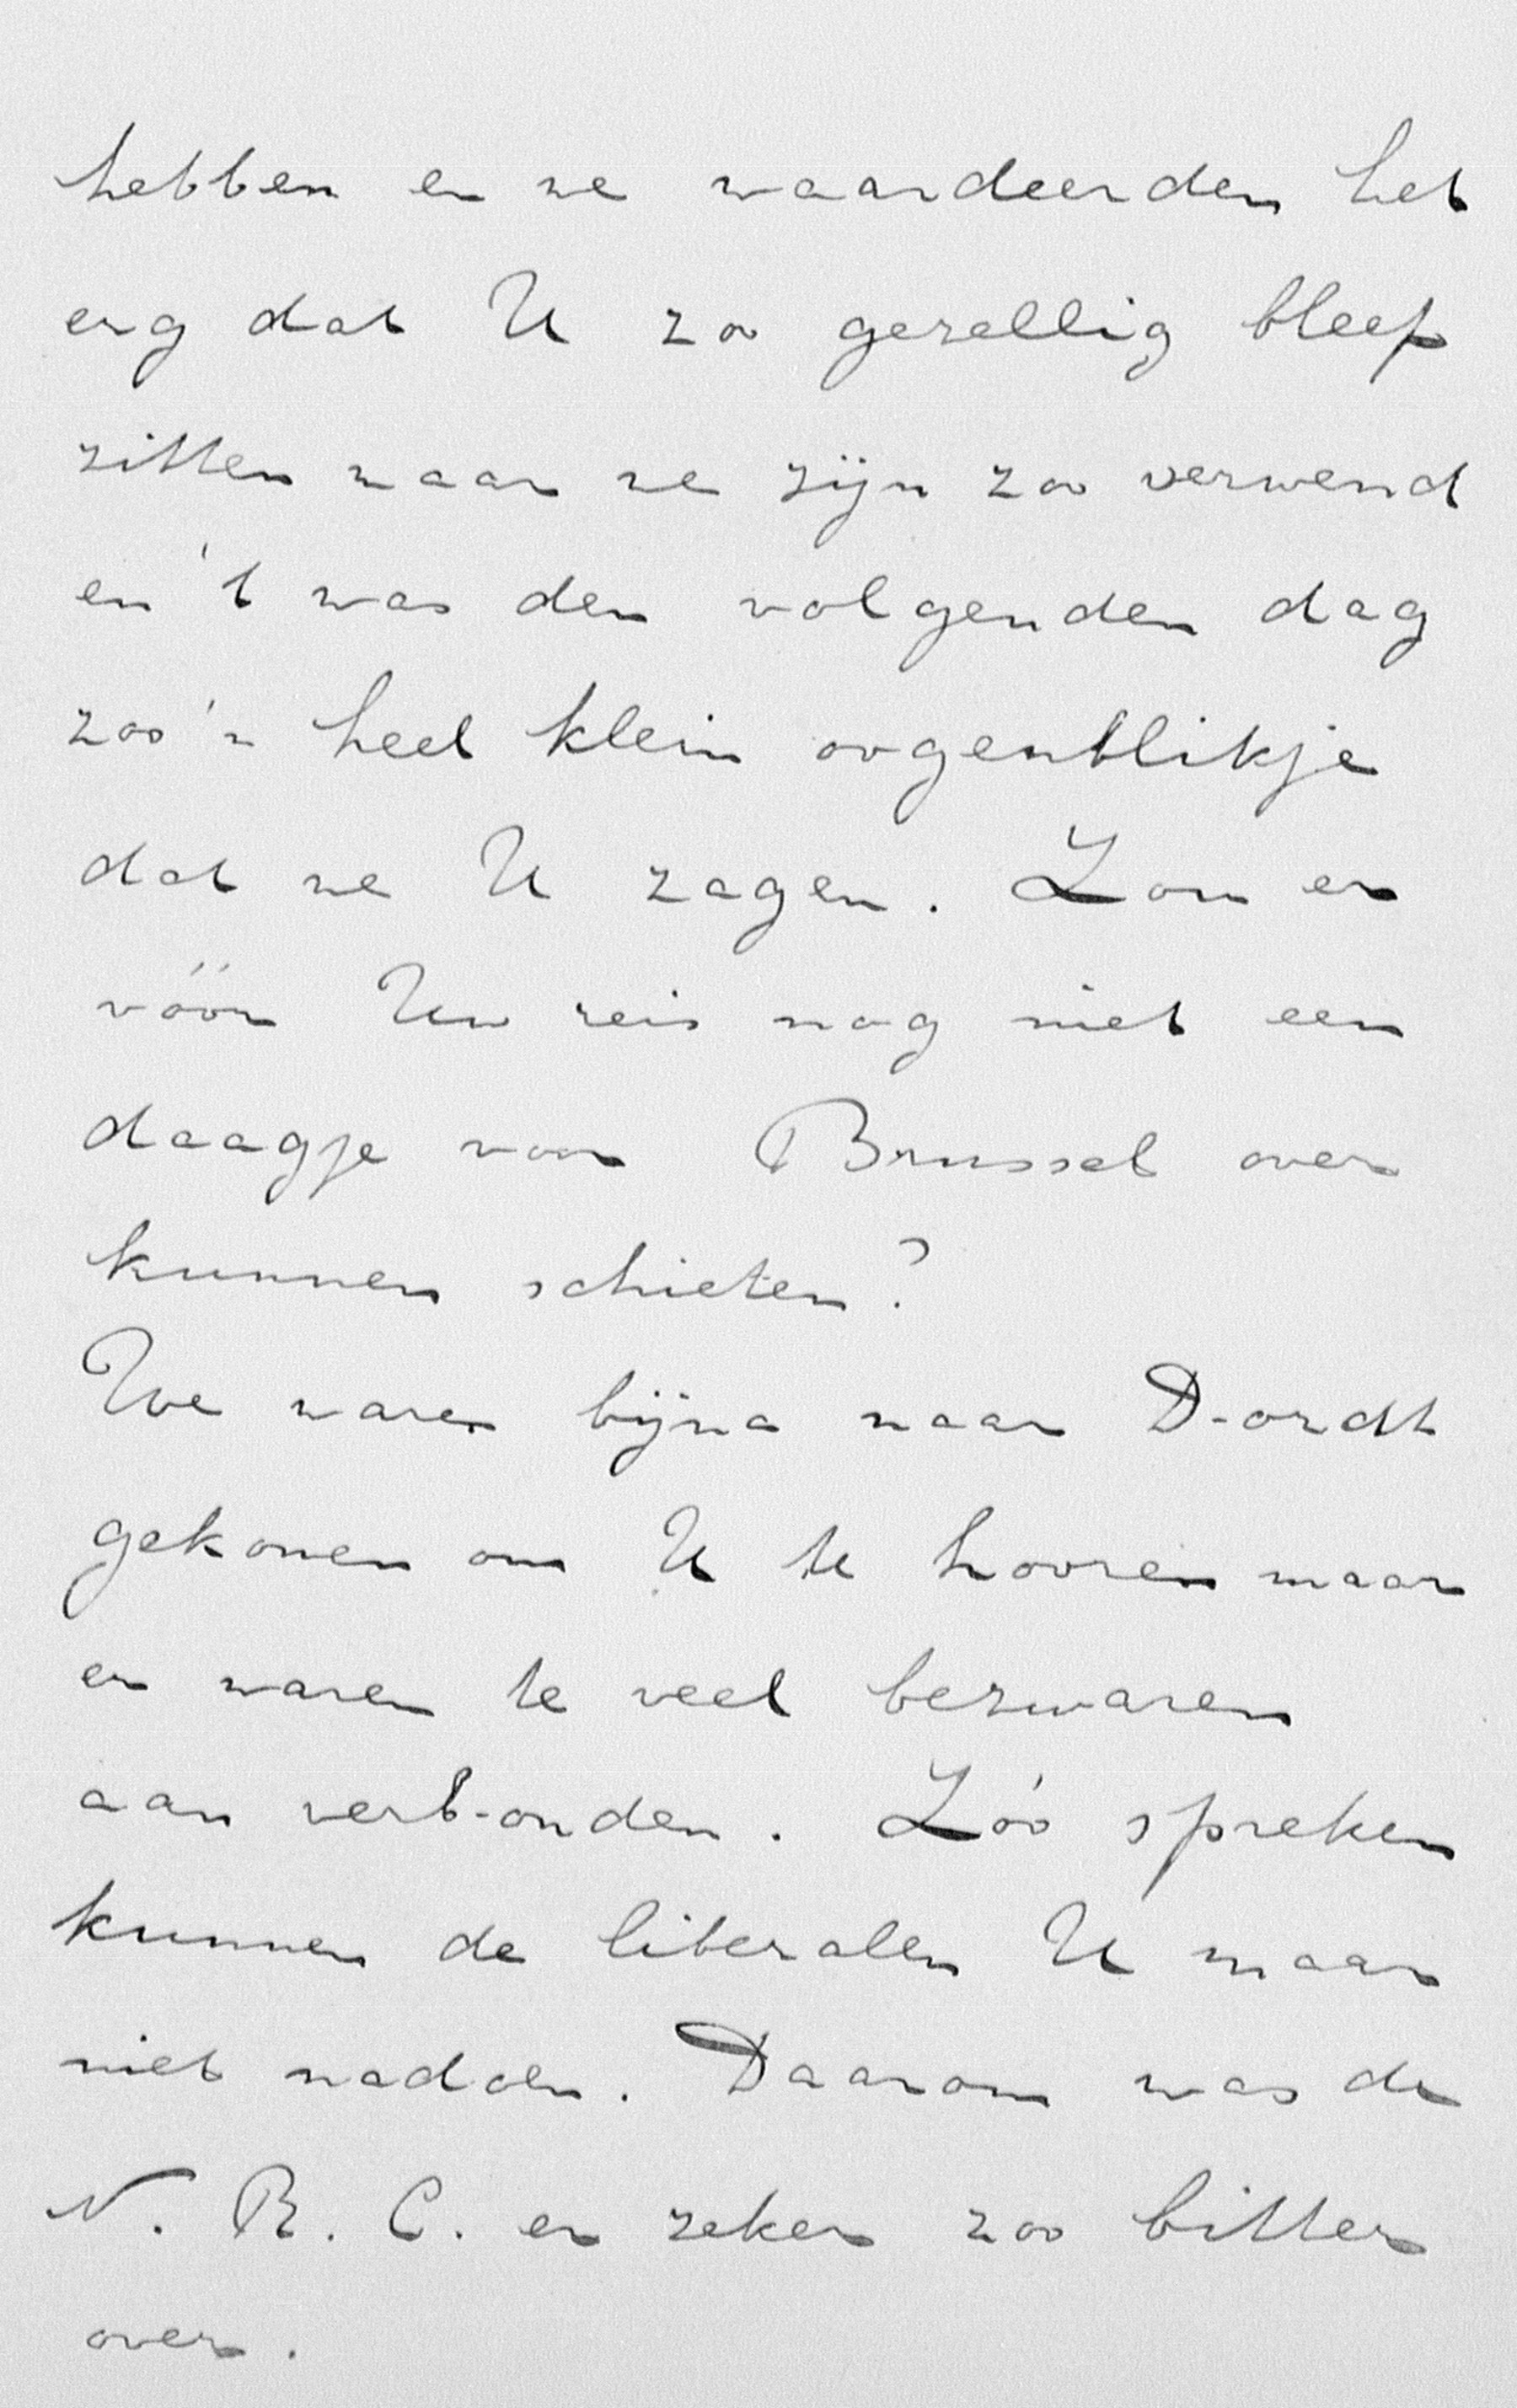 hebben en we waardeerden het
erg dat U zoo gezellig bleef
zitten maar we zijn zoo verwend
en 't was den volgenden dag
zoo'n heel klein oogenblikje
dat we U zagen. Zou er
vóór Uw reis nog niet een
daagje voor Brussel over
kunnen schieten?
We waren bijna naar Dordt
gekomen om U te hooren maar
er waren te veel bezwaren
aan verbonden. Zóó spreken
kunnen de liberalen U maar
niet nadoen. Daarom was de
N. R. C. er zeker zoo bitter
over.